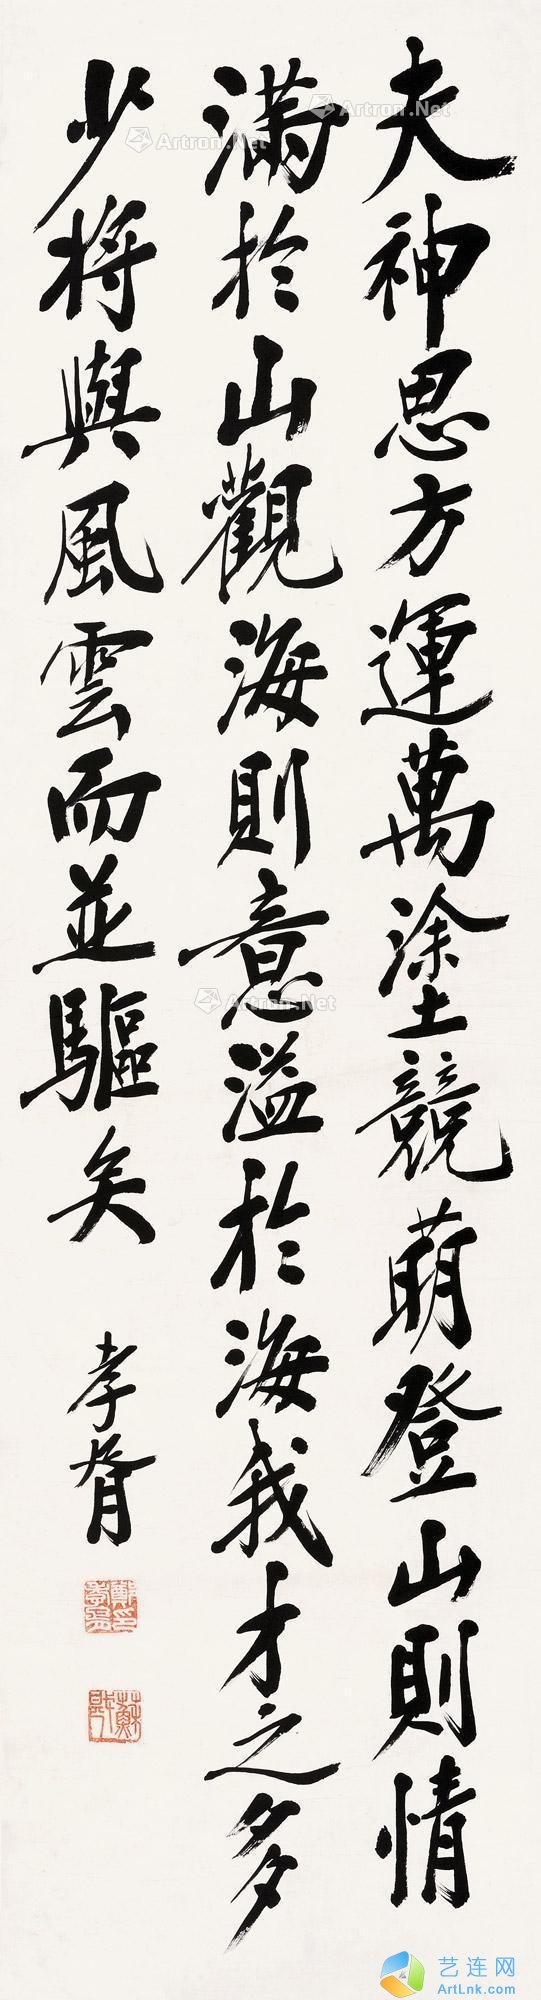 夫神思方運萬塗競萌登山則情
滿於山觀海則意溢於海我才之多
少將與風雲而並驅矣
孝胥
鄭孝胥印
蘇戡
Artron.Net
Artron.Net
Artron.Net
Artron.Net
艺连网
ArtLnk.com